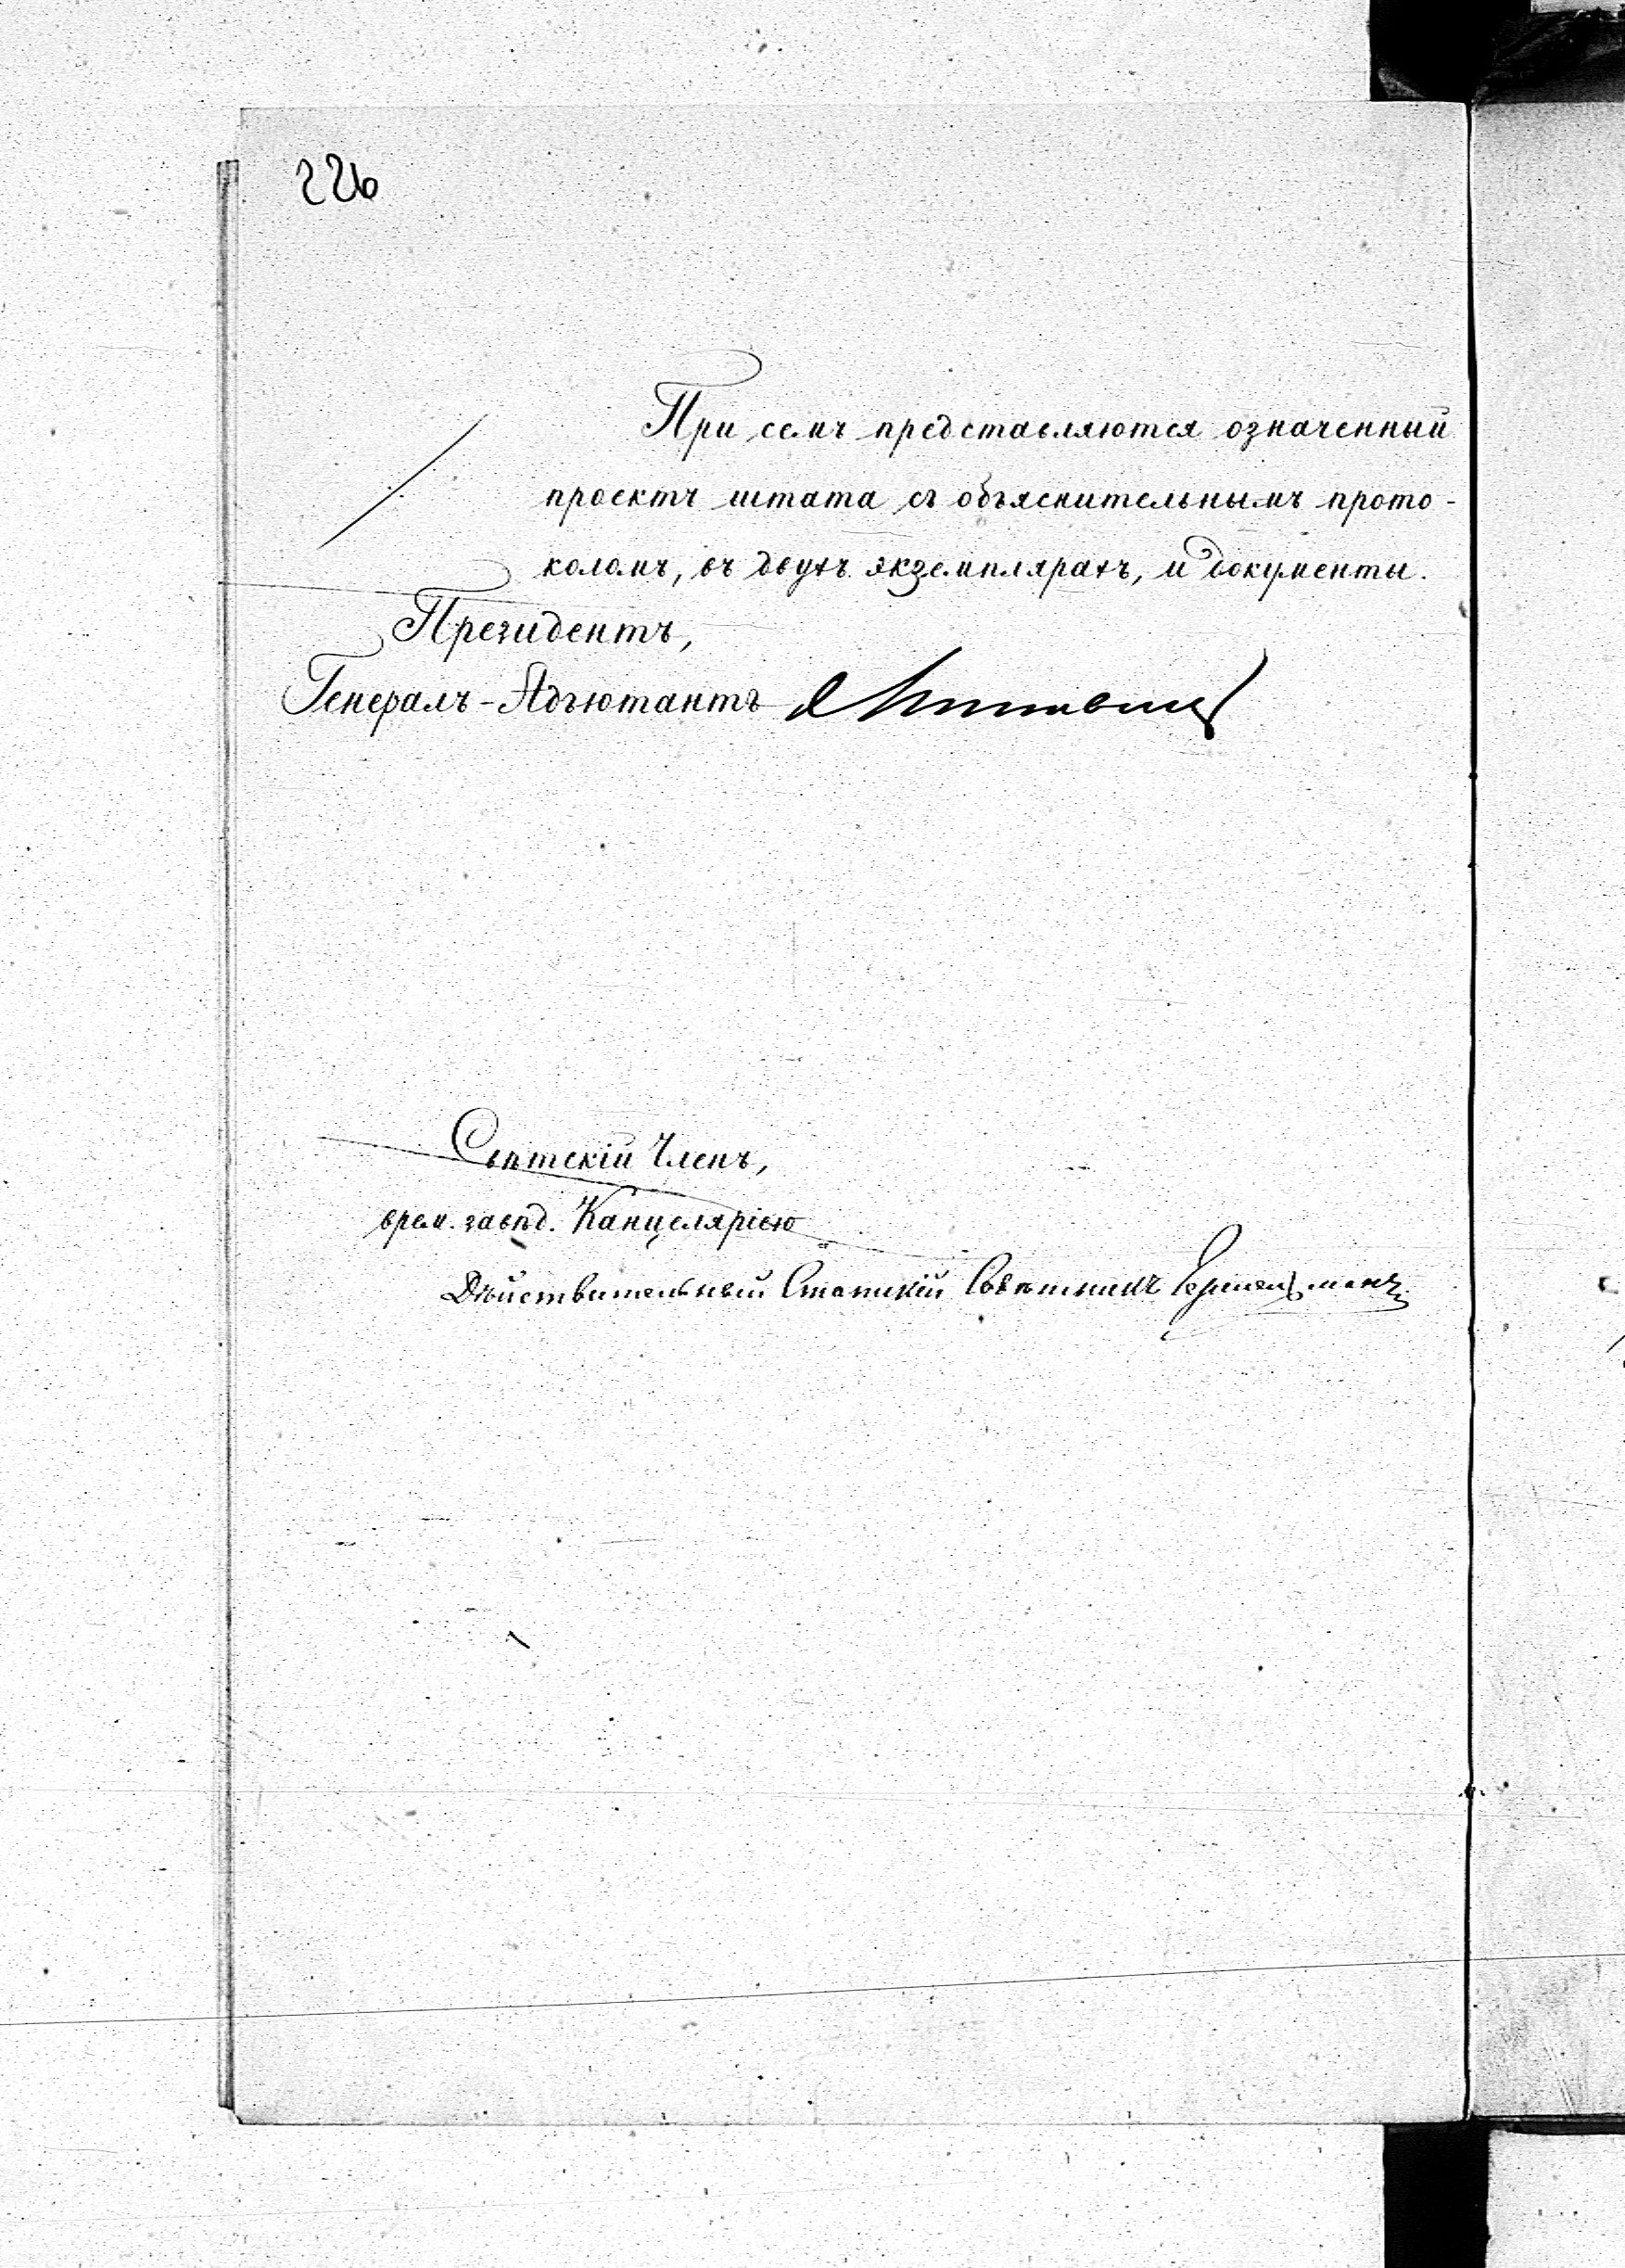 226
При семъ представляются означенный
проектъ штата съ объяснительнымъ прото-
коломъ, въ двухъ экземплярахъ, и документы.
Президентъ,
Генералъ-Адъютантъ
Свѣтскій Членъ,
врем. завѣд. Канцеляріею
Дѣйствительный Статскій Совѣтникъ